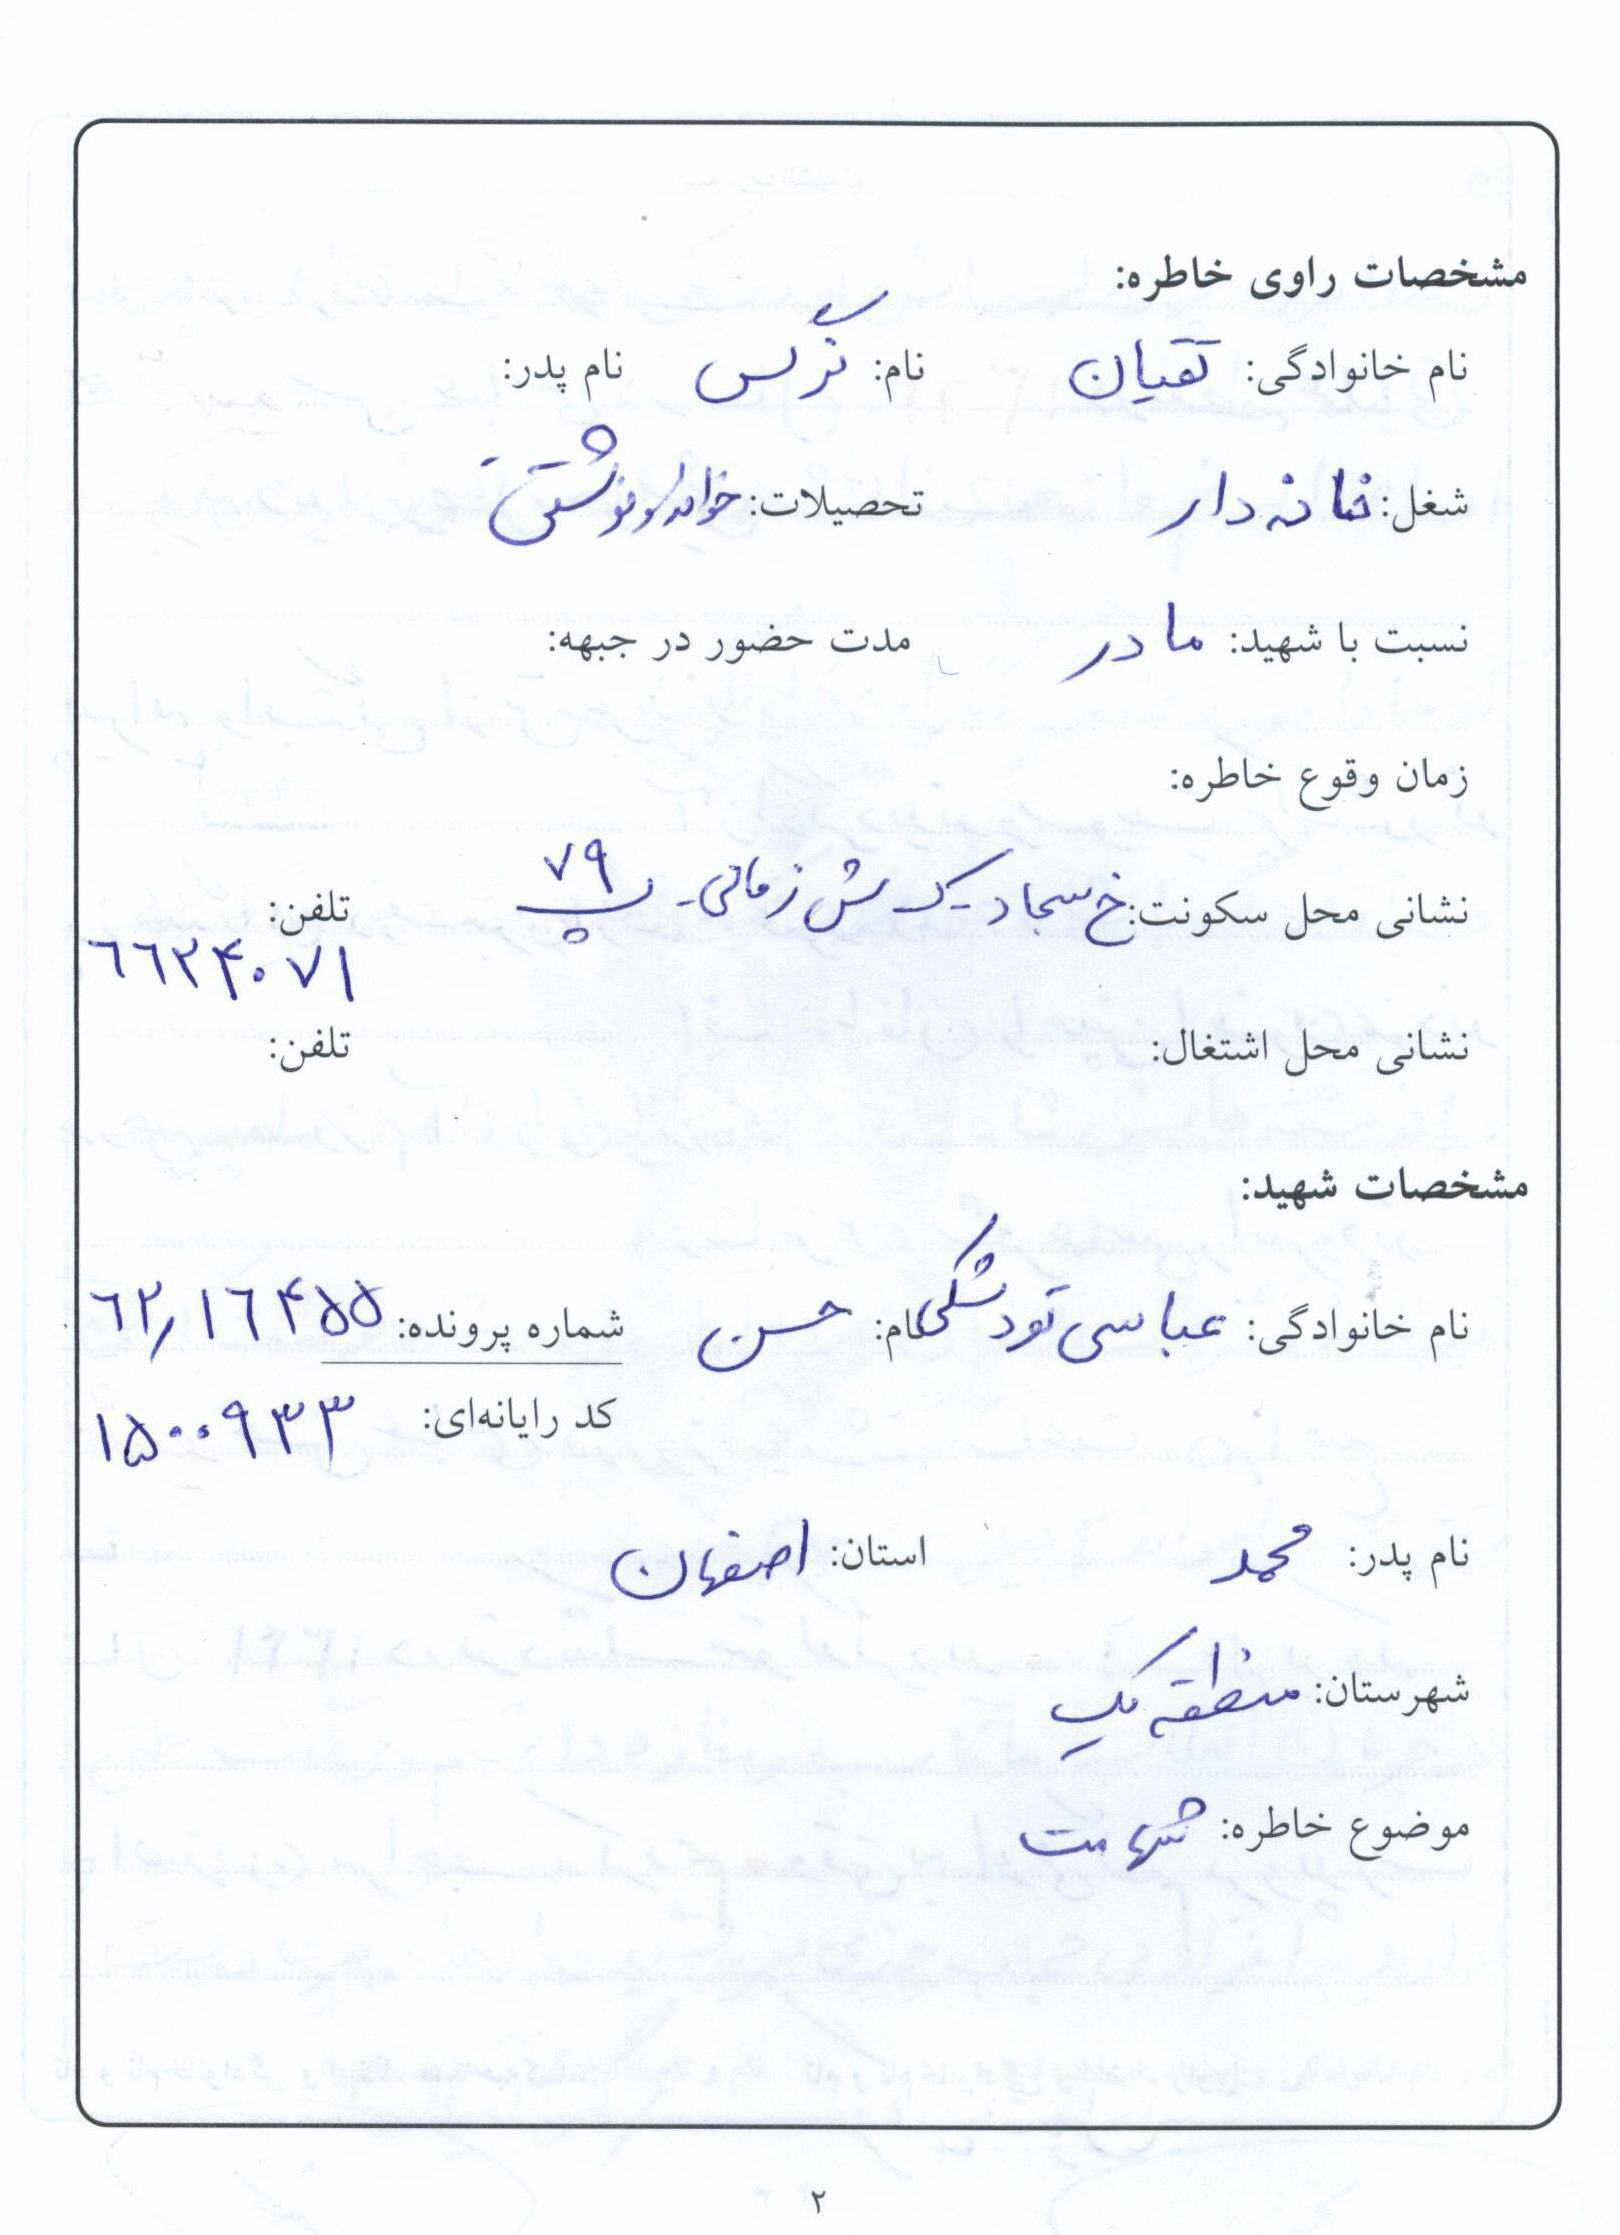 مشخصات راوی خاطره:
نام خانوادگی: تقیان نام: نرگس نام پدر:
شغل: خانه دار تحصیلات: خواندن و نوشتن
نسبت با شهید: مادر مدت حضور در جبهه:
زمان وقوع خاطره:
نشانی محل سکونت: خ سجاد - ک ش زمانی - پ ۷۹ تلفن:
۶۶۲۴۰۷۱
نشانی محل اشتغال: تلفن:
مشخصات شهید:
نام خانوادگی: عباسی تودشکی نام: حسن شماره پرونده: ۶۲/۱۶۴۵۵
کد رایانه‌ای: ۱۵۰۰۹۳۳
نام پدر: محمد استان: اصفهان
شهرستان: منطقه یک
موضوع خاطره:
۲